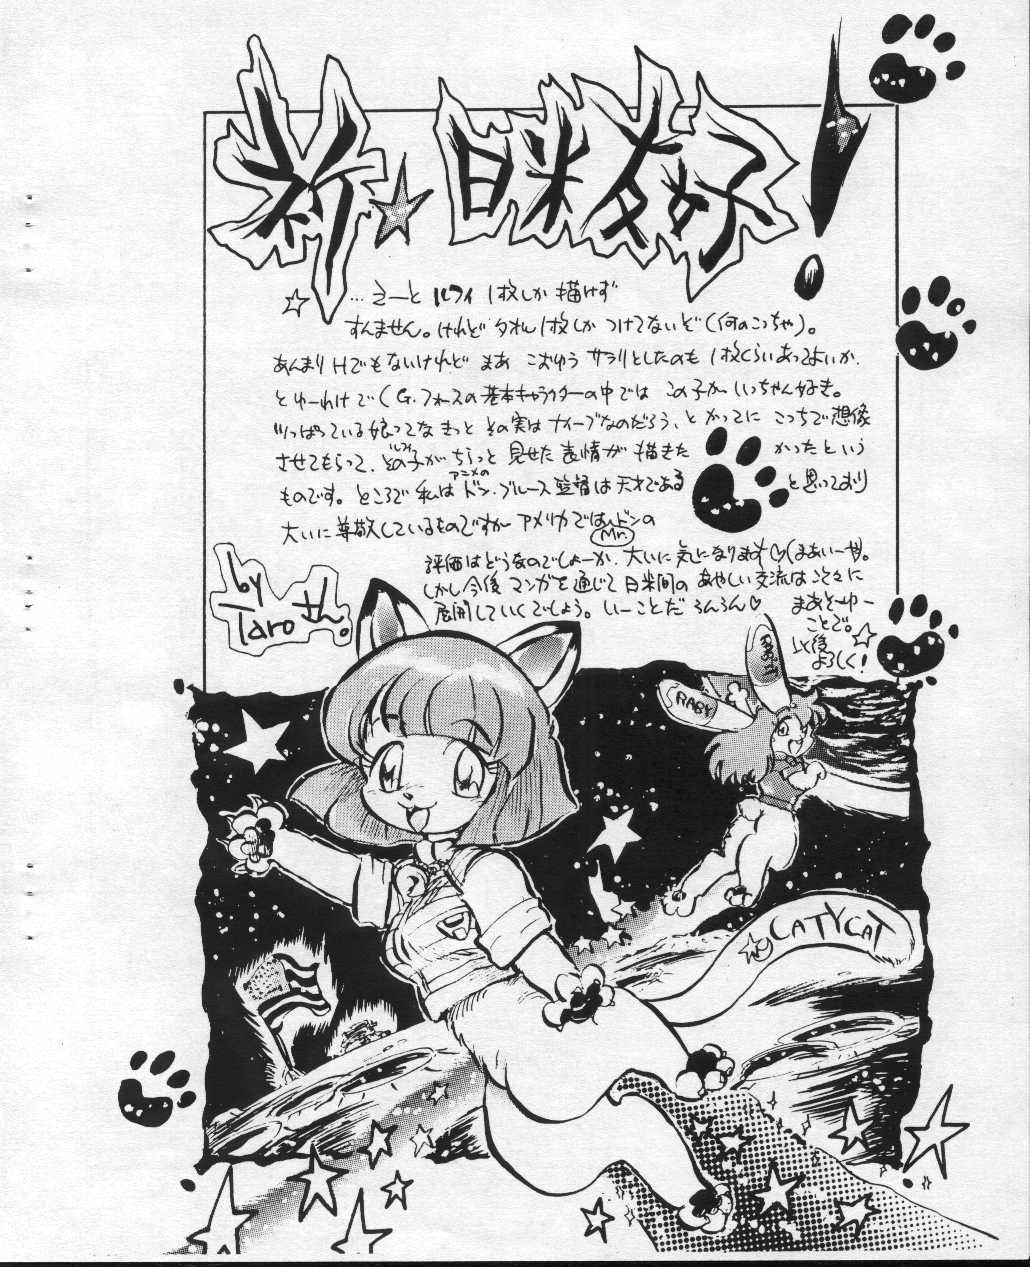 新☆日米友好!
☆…えーと ルフィ 1枚しか描けず
すんません。けれど タオル1枚しかつけてないぞ(何のこっちゃ)。
あんまりHでもないけれど まあ こおゆう サラリとしたのも 1枚くらいあってよいか.
とゆーわけで(G.フォースの基本キャラクターの中では この子が いっちゃん好き。
ツっぱっている娘ってな きっと その実は ナイーブなのだろう、と かってに こっちで想像
させてもらって、その子がちらっと 見せた 表情が 描きた かったという
ルフィ
ものです。ところで 私は アニメの ドン・ブルース監督は天才である と思っており
大いに尊敬しているものですが アメリカでは、ドンの
Mr.
評価はどうなのでしょーか、大いに 気になります♡(まあいーや)。
しかし今後 マンガを通じて 日米間の あやしい交流は ことさらに
展開していくでしょう。いーことだ らんらん♡
まあそーゆー
ことで。
以後☆
よろしく!
by
Taroさん。
RABY
RABIT
CATYCAT